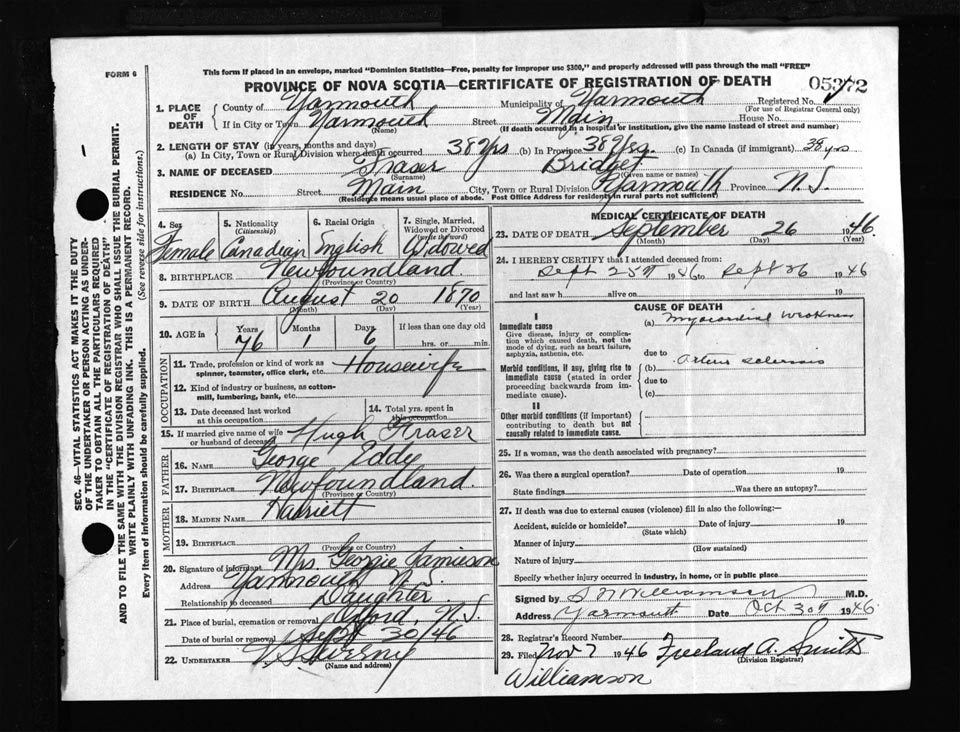 FORM 6
This form if placed in an envelope, marked "Dominion Statistics—Free, penalty for improper use $300," and properly addressed will pass through the mail "FREE"
PROVINCE OF NOVA SCOTIA—CERTIFICATE OF REGISTRATION OF DEATH
05372
1. PLACE OF DEATH
County of Yarmouth Municipality of Yarmouth Registered No.
(For use of Registrar General only)
If in City or Town Yarmouth Street Main House No.
(Name) (If death occurred in a hospital or institution, give the name instead of street and number)
2. LENGTH OF STAY (in years, months and days)
(a) In City, Town or Rural Division where death occurred 38 yrs (b) In Province 38 yrs. (c) In Canada (if immigrant) 38 yrs
3. NAME OF DECEASED Fraser Bridget
(Surname) (Given name or names)
RESIDENCE No. Street Main City, Town or Rural Division Yarmouth Province N.S.
(Residence means usual place of abode. Post Office Address for residents in rural parts not used)
4. Sex Female
5. Nationality (Citizenship) Canadian
6. Racial Origin English
7. Single, Married, Widowed or Divorced (write the word) Widowed
8. BIRTHPLACE Newfoundland.
(Province or Country)
9. DATE OF BIRTH August 20 1870
(Month) (Day) (Year)
10. AGE in Years 76 Months 1 Days 6 If less than one day old hrs. or min.
OCCUPATION
11. Trade, profession or kind of work as spinner, teamster, office clerk, etc. Housewife
12. Kind of industry or business, as cotton-mill, lumbering, bank, etc.
13. Date deceased last worked at this occupation
14. Total yrs. spent in this occupation
15. If married give name of wife or husband of deceased Hugh Fraser
FATHER
16. NAME George Eddy
17. BIRTHPLACE Newfoundland.
(Province or Country)
MOTHER
18. MAIDEN NAME Harriett
19. BIRTHPLACE
(Province or Country)
20. Signature of informant Mrs. Georgie Jamieson
Address Yarmouth N.S.
Relationship to deceased Daughter
21. Place of burial, cremation or removal Oxford, N.S.
Date of burial or removal Sept 30/46
22. UNDERTAKER V S Sweeny
(Name and address)
MEDICAL CERTIFICATE OF DEATH
23. DATE OF DEATH September 26 1946.
(Month) (Day) (Year)
24. I HEREBY CERTIFY that I attended deceased from:
Sept 25th 1946 to Sept 26 1946
and last saw h alive on 19
CAUSE OF DEATH
I
Immediate cause
Give disease, injury or complication which caused death, not the mode of dying, such as heart failure, asphyxia, asthenia, etc.
(a) Myocardial Weakness
due to
Morbid conditions, if any, giving rise to immediate cause (stated in order proceeding backwards from immediate cause).
(b) Arterio sclerosis
due to
(c)
II
Other morbid conditions (if important) contributing to death but not causally related to immediate cause.
25. If a woman, was the death associated with pregnancy?
26. Was there a surgical operation? Date of operation 19
State findings Was there an autopsy?
27. If death was due to external causes (violence) fill in also the following:—
Accident, suicide or homicide? Date of injury 19
(State which)
Manner of injury
(How sustained)
Nature of injury
Specify whether injury occurred in industry, in home, or in public place
Signed by S N Williamson M.D.
Address Yarmouth Date Oct 30th 1946
28. Registrar's Record Number
29. Filed Nov 7 1946 Freeland A. Smith
(Division Registrar)
Williamson
SEC. 46—VITAL STATISTICS ACT MAKES IT THE DUTY
OF THE UNDERTAKER OR PERSON ACTING AS UNDERTAKER TO OBTAIN ALL THE PARTICULARS REQUIRED
IN THE "CERTIFICATE OF REGISTRATION OF DEATH"
AND TO FILE THE SAME WITH THE DIVISION REGISTRAR WHO SHALL ISSUE THE BURIAL PERMIT.
WRITE PLAINLY WITH UNFADING INK. THIS IS A PERMANENT RECORD.
Every item of information should be carefully supplied. (See reverse side for instructions.)